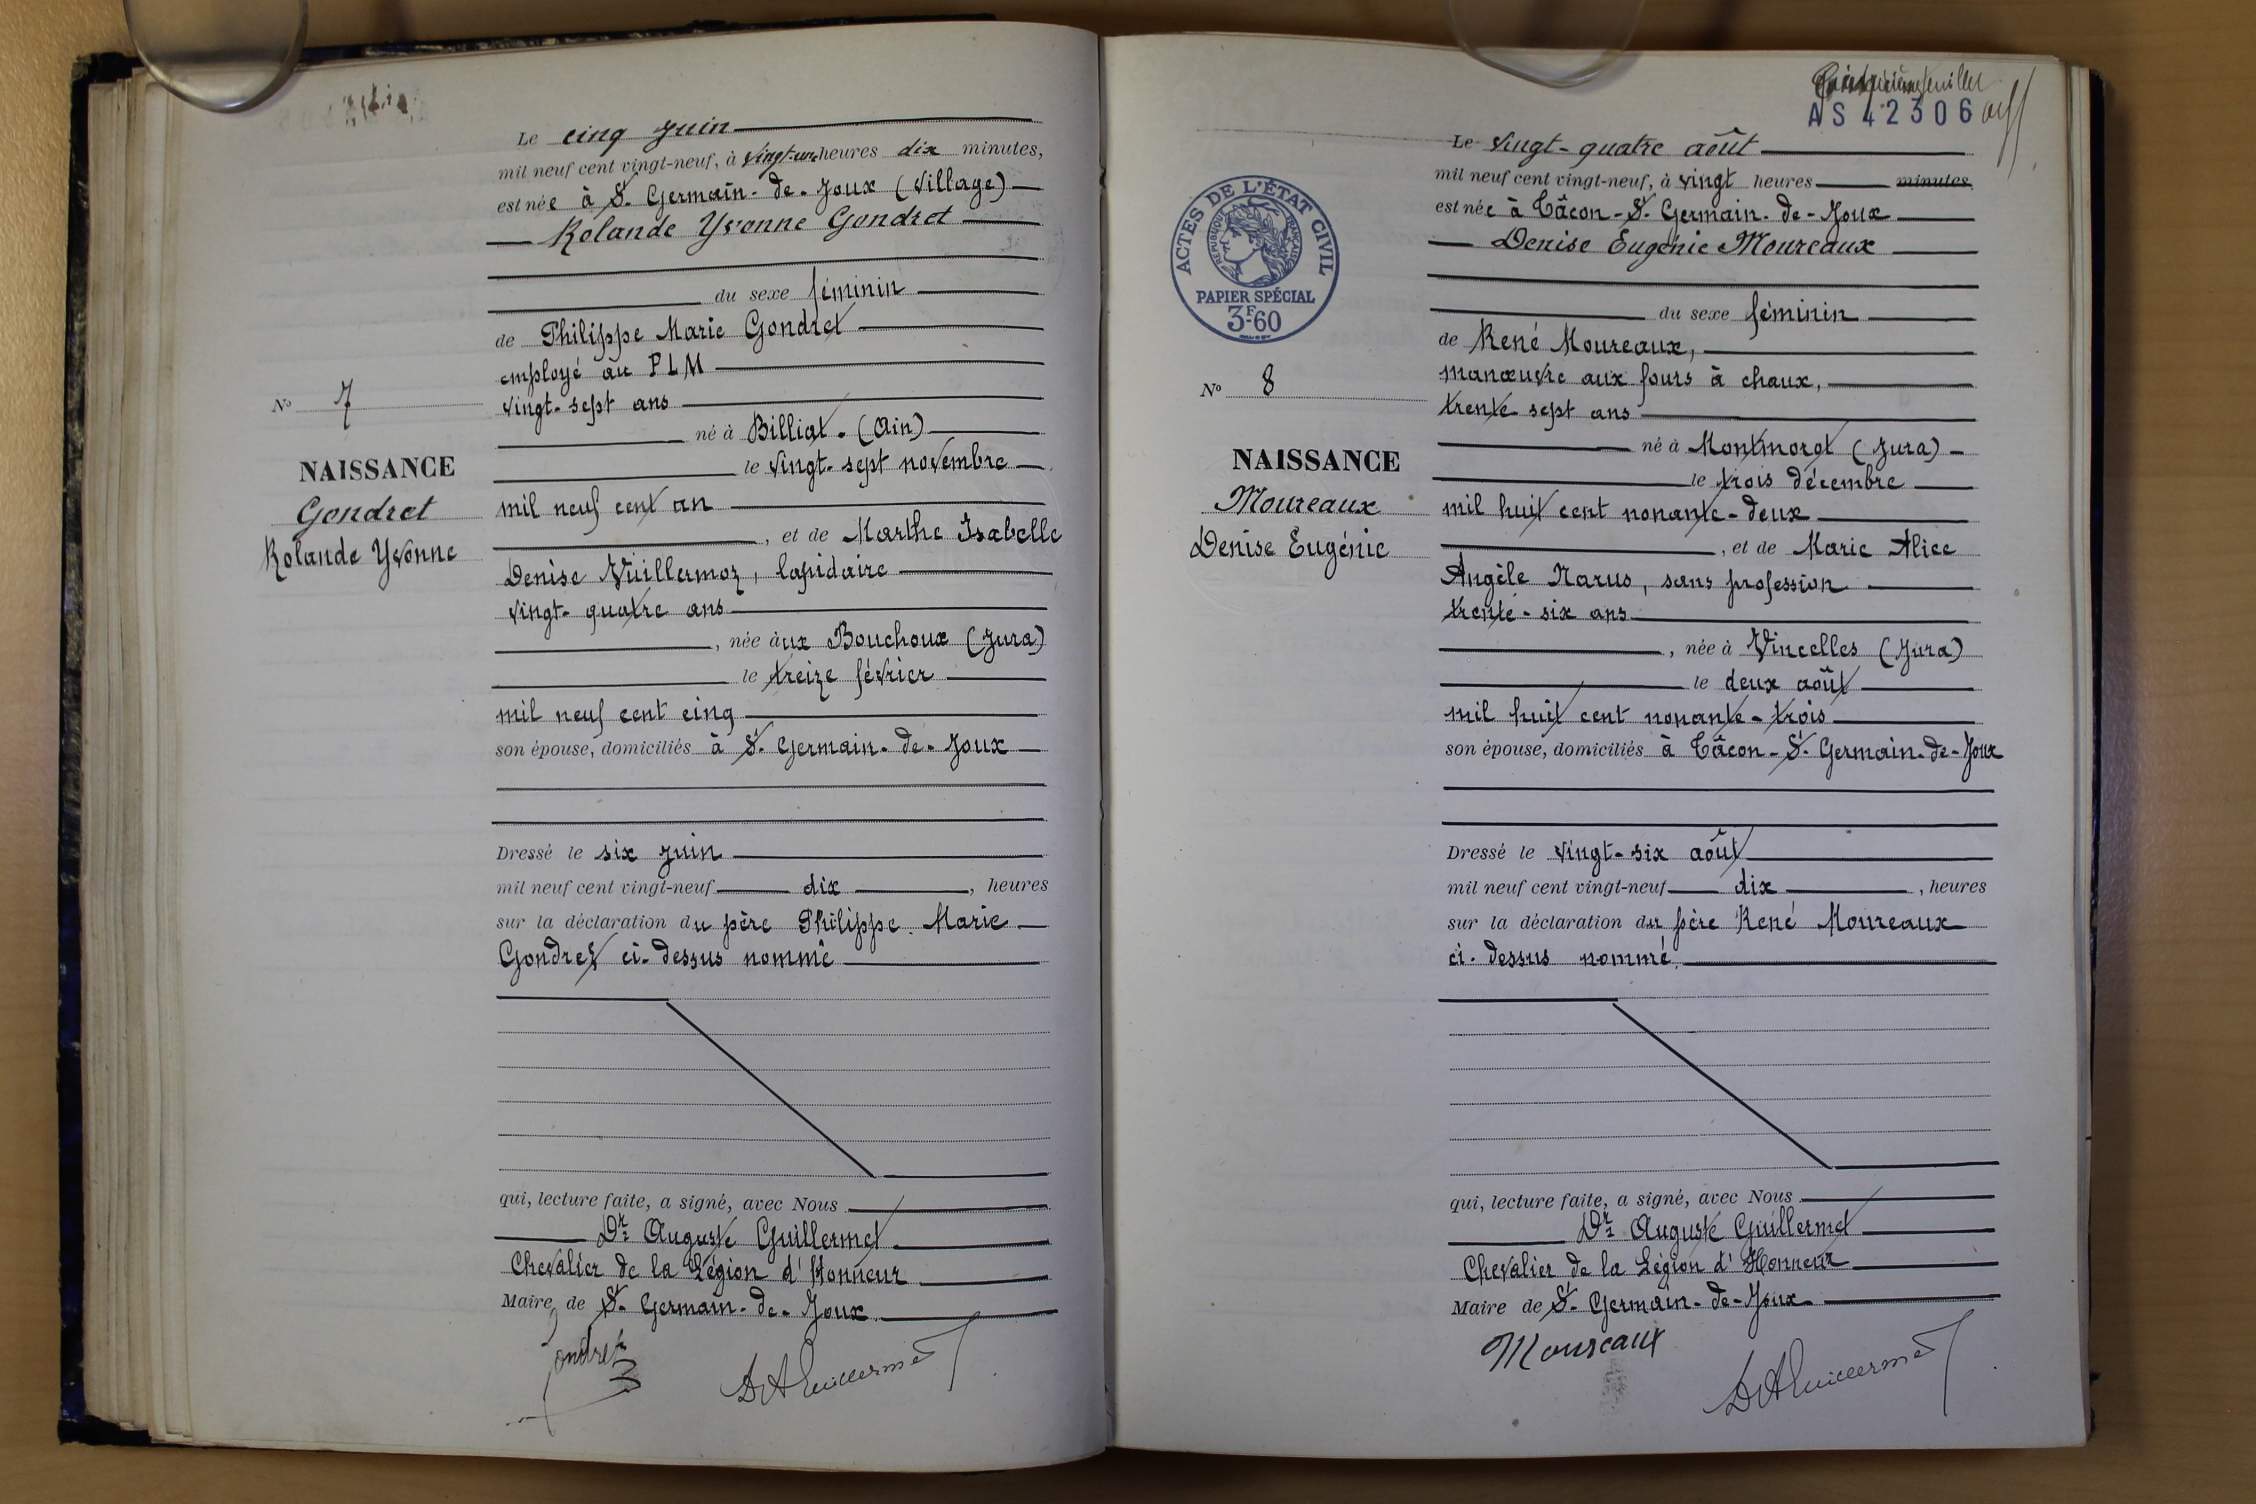 Le cinq juin
mil neuf cent vingt-neuf, à vingt-une heures dix minutes,
est née à St. Germain-de-Joux (Village)
Rolande Yvonne Gondret
du sexe féminin
de Philippe Marie Gondret
employé au PLM
vingt-sept ans
né à Billiat. (Ain)
le vingt-sept novembre
mil neuf cent un
, et de Marthe Isabelle
Denise Vuillermoz, lapidaire
vingt-quatre ans
, née aux Bouchoux (Jura)
le treize février
mil neuf cent cinq
son épouse, domiciliés à St. Germain-de-Joux
Dressé le six juin
mil neuf cent vingt-neuf dix , heures
sur la déclaration du père Philippe Marie
Gondret ci-dessus nommé
qui, lecture faite, a signé, avec Nous
Dr Auguste Guillermet
Chevalier de la Légion d'Honneur
Maire de St. Germain-de-Joux
Gondret
DrAGuillermet
No 7
NAISSANCE
Gondret
Rolande Yvonne
feuillet
AS 42306
Le vingt-quatre août
mil neuf cent vingt-neuf, à vingt heures minutes,
est née à Tâcon-St. Germain-de-Joux
Denise Eugénie Moureaux
du sexe féminin
de René Moureaux,
manœuvre aux fours à chaux,
trente sept ans
né à Montmorot (Jura)
le trois décembre
mil huit cent nonante-deux
, et de Marie Alice
Angèle Marus, sans profession
trente-six ans
, née à Vincelles (Jura)
le deux août
mil huit cent nonante-trois
son épouse, domiciliés à Tâcon-St. Germain-de-Joux
Dressé le vingt-six août
mil neuf cent vingt-neuf dix , heures
sur la déclaration du père René Moureaux
ci-dessus nommé
qui, lecture faite, a signé, avec Nous
Dr Auguste Guillermet
Chevalier de la Légion d'Honneur
Maire de St. Germain-de-Joux
Moureaux
DrAGuillermet
ACTES DE L'ÉTAT CIVIL
RÉPUBLIQUE FRANÇAISE
PAPIER SPÉCIAL
3F.60
No 8
NAISSANCE
Moureaux
Denise Eugénie